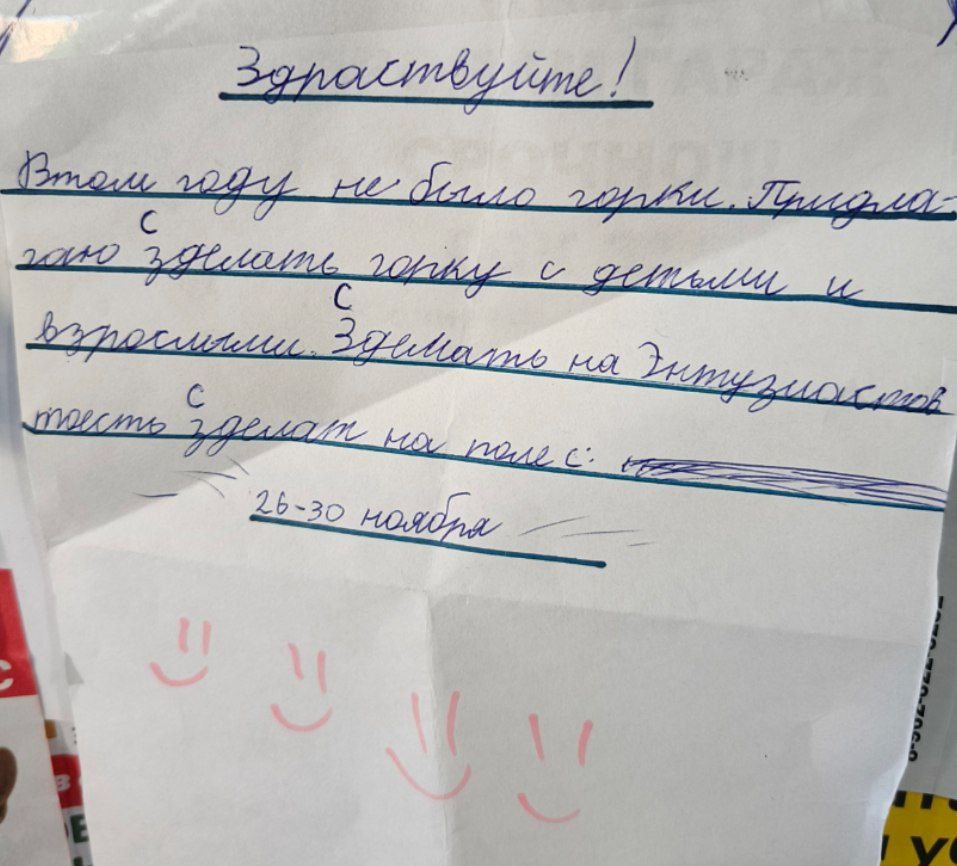 Здраствуйте!
Втом году не было горки. Придла-
с
гаю зделать горку с детьми и
с
взрослыми. Зделать на Энтузиастов
с
тоесть зделат на поле с:
26-30 ноября